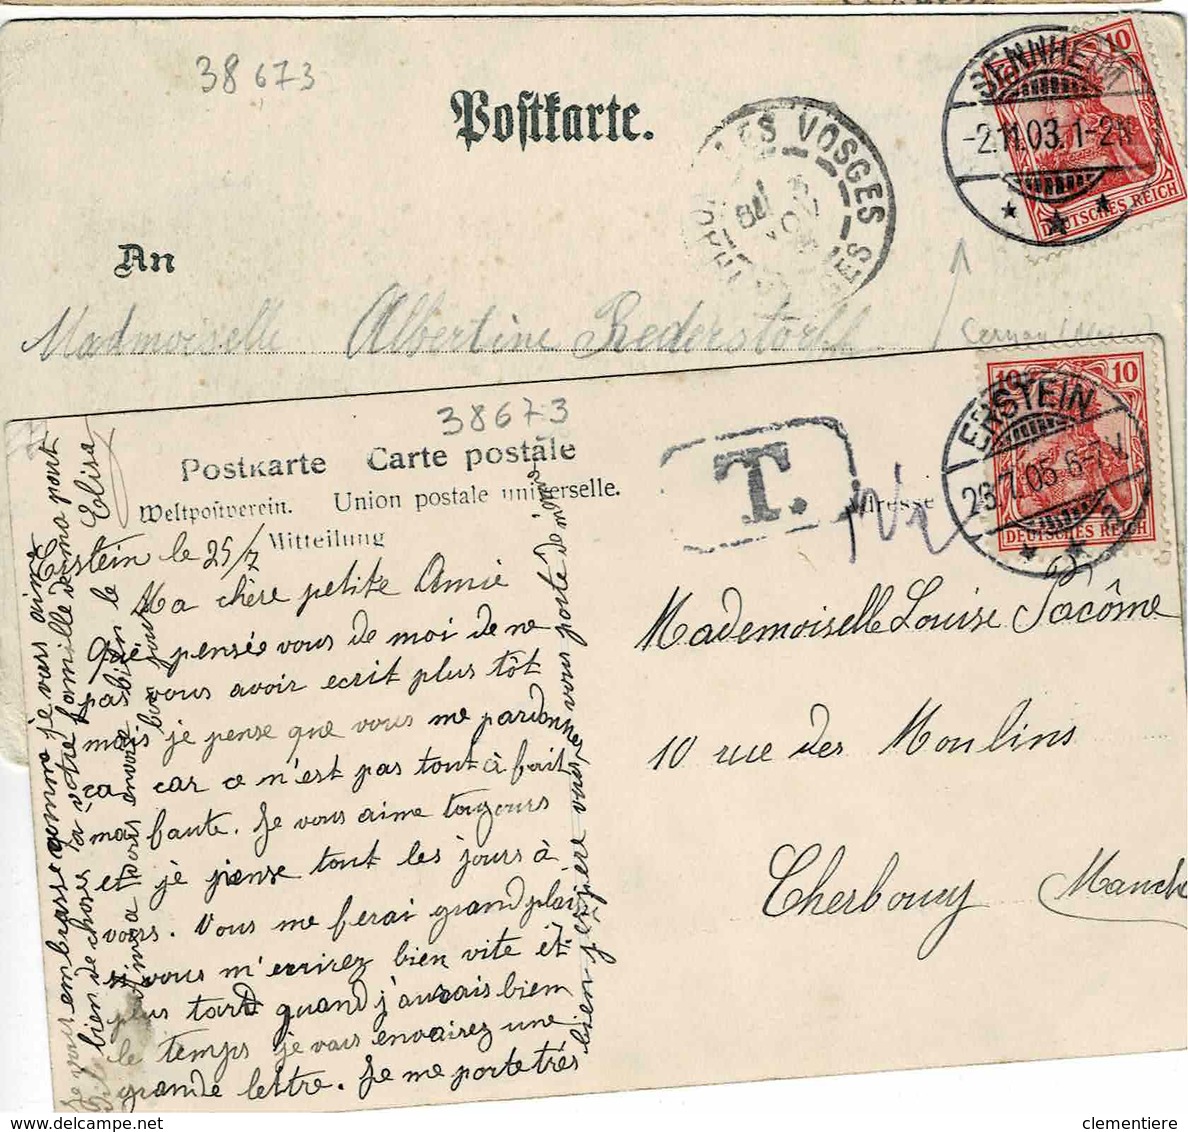 38673
Postkarte.
SENNHEIM
-2.11.03.1-2N
10
DEUTSCHES REICH
LES VOSGES
An
Madmoiselle Albertine Rederstorff
38673
Postkarte Carte postale
Weltpostverein. Union postale universelle.
Mitteilung
T.
Adresse
ERSTEIN
10
DEUTSCHES REICH
Erstein le 25/7
Ma chère petite Amie
Que pensée vous de moi de ne
pas vous avoir ecrit plus tôt
mais je pense que vous me pardonnez
ça car ce n'est pas tout à fait
ma faute. Je vous aime toujours
et je pense tout les jours à
vous. Vous me ferai grand plaisir
si vous m'ecrirez bien vite et
plus tard quand j'aurais bien
le temps je vais envoirez une
grande lettre. Je me porte très
bien j'espère vous, vous porte de même
Je vous embrasse comme je vous aime
bien de choses à votre famille de ma part
Elisa
bonjour
Mademoiselle Louise Jacôme
10 rue des Moulins
Cherbourg Manche
clementiere